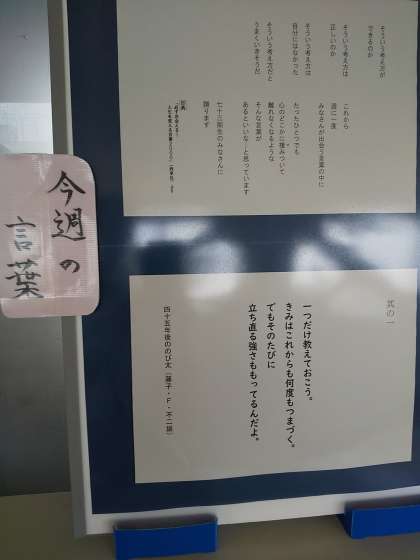 そういう考え方が
できるのか
そういう考え方は
正しいのか
そういう考え方は
自分にはなかった
そういう考え方だと
うまくいきそうだ
これから
週に一度
みなさんが出会う言葉の中に
たったひとつでも
心のどこかに棲みついて
離れなくなるような
そんな言葉が
あるといいな～と思っています
七十三期生のみなさんに
贈ります
今週の
言葉
其の一
一つだけ教えておこう。
きみはこれからも何度もつまづく。
でもそのたびに
立ち直る強さももってるんだよ。
四十五年後ののび太（藤子・Ｆ・不二雄）